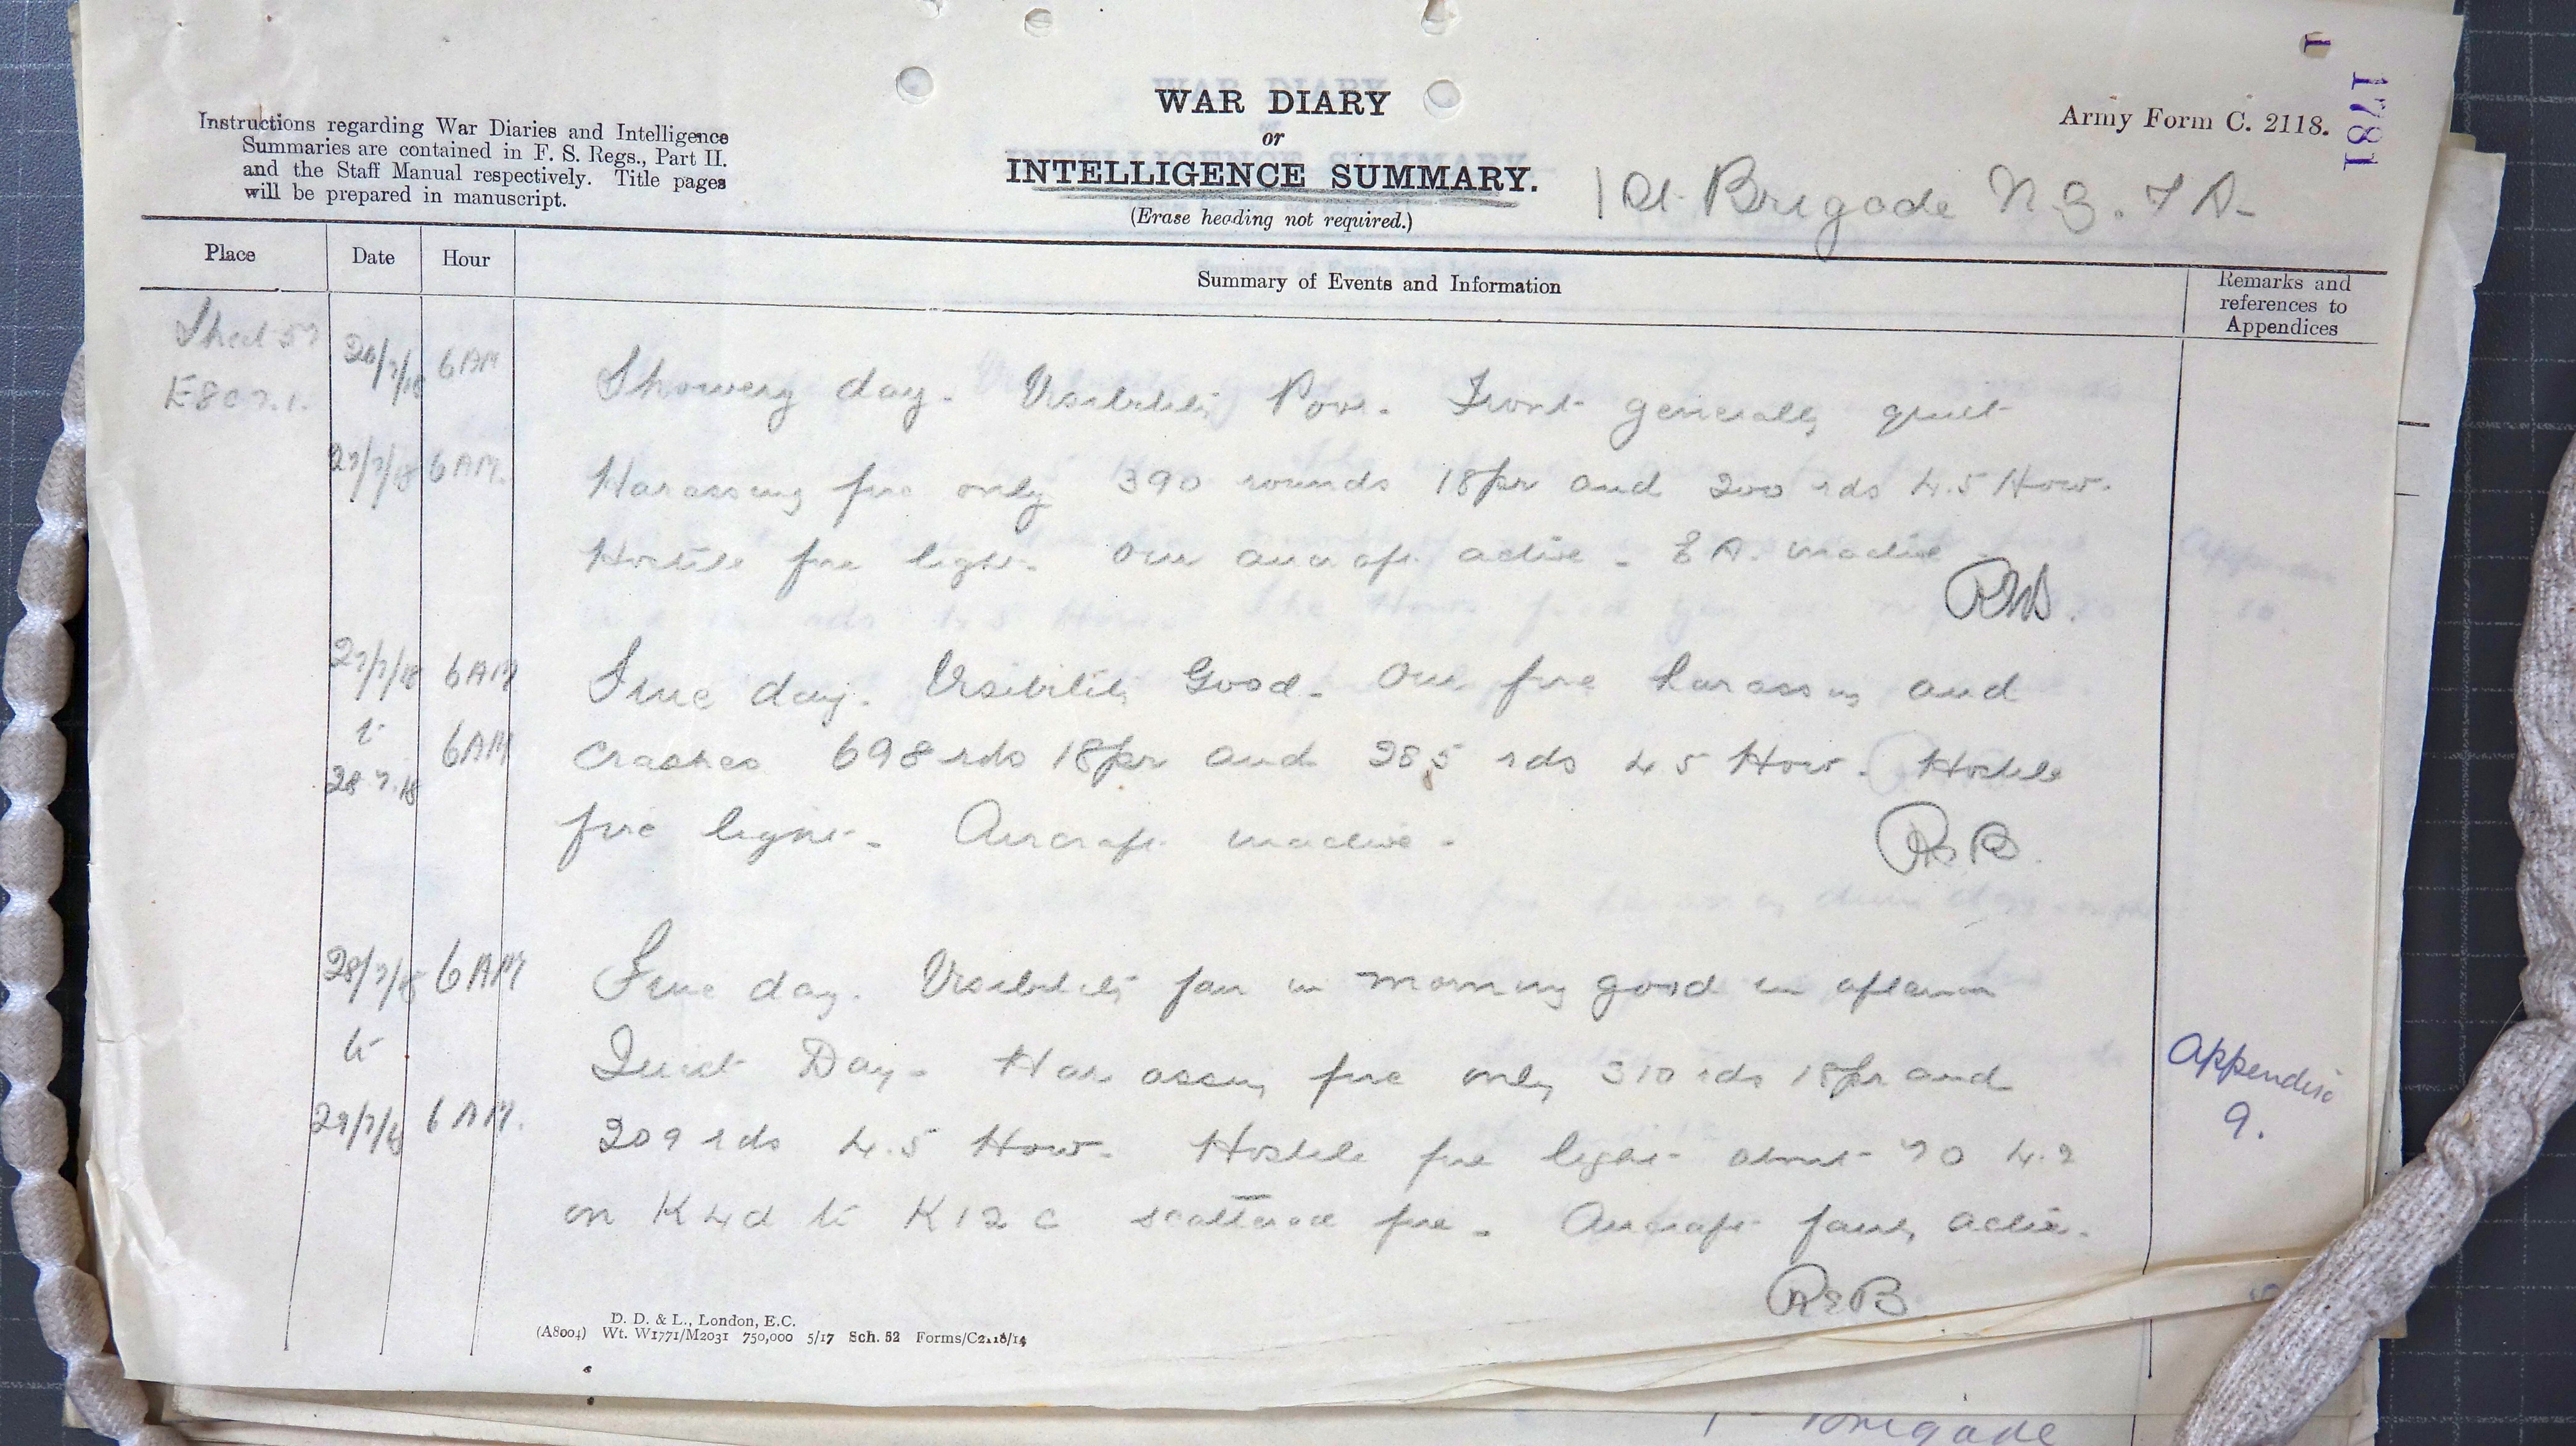 1781
Army Form C. 2118.
WAR DIARY
or
INTELLIGENCE SUMMARY.
(Erase heading not required.)
Instructions regarding War Diaries and Intelligence
Summaries are contained in F. S. Regs., Part II.
and the Staff Manual respectively. Title pages
will be prepared in manuscript.
1st Brigade N.Z.F.A.
Place
Date
Hour
Summary of Events and Information
Remarks and
references to
Appendices
Sheet 57
E8c7.1.
26/7/18 6AM Showery day. Visibility Poor. Front generally quiet
27/7/18 6AM. Harassing fire only 390 rounds 18pr and 200 rds 4.5 How.
Hostile fire light. Our aircraft active. E A. inactive
27/7/18 6AM Fine day. Visibility Good. Our fire harassing and
to 6AM crashes 698 rds 18pr and 285 rds 45 How. Hostile
28.7.18
fire light. Aircraft inactive.
28/7/18 6AM Fine day. Visibility fair in morning good in afternoon
to Quiet Day. Harassing fire only 310 rds 18pr and
29/7/18 6AM. 209 rds 4.5 How. Hostile fire light about 70 4.2
on K4d to K12c scattered fire. Aircraft fairly active.
Appendix
9.
D. D. & L., London, E.C.
(A8004) Wt. W1771/M2031 750,000 5/17 Sch. 52 Forms/C2118/14
Brigade